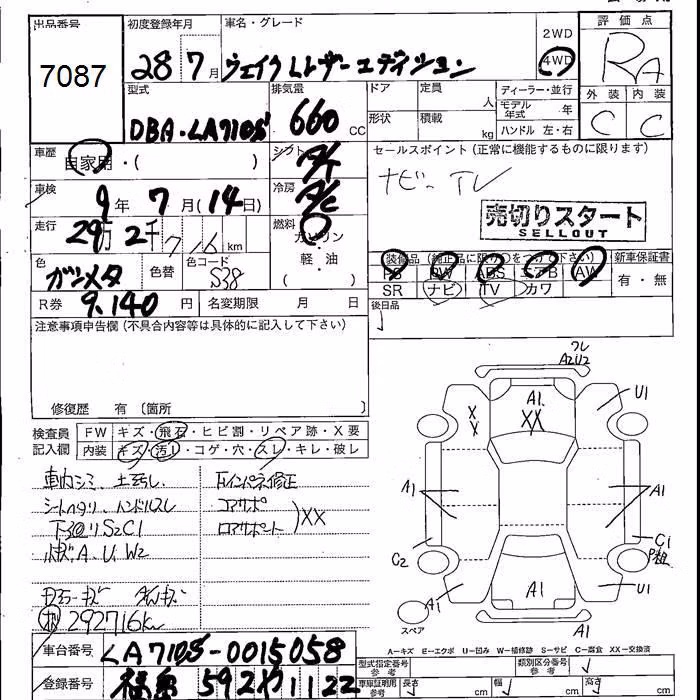 出品番号
7087
初度登録年月
28 7月
車名・グレード
ウェイク Lレザーエディション
2WD
4WD
評価点
RA
型式
DBA・LA710S
排気量
660 CC
ドア
定員 人
形状
積載 kg
ディーラー・並行
モデル年式 年
ハンドル 左・右
外装 内装
C C
車歴
自家用・( )
シフト
A/T
セールスポイント (正常に機能するものに限ります)
ナビ-TV
車検
9年 7月(14日)
冷房
A/C
売切りスタート
SELLOUT
走行
29万 2千716 km
燃料
ガソリン・軽・油
( )
色
ガンメタ
色替
色コード
S38
装備品 (純正品に限り○をつけて下さい)
PS PW ABS エアB AW
SR ナビ TV カワ
新車保証書
有・無
R券 9,140 円
名変期限 月 日
後日品
注意事項申告欄 (不具合内容等は具体的に記入して下さい)
修復歴 有 〔箇所 〕
検査員記入欄
FW キズ・飛石・ヒビ割・リペア跡・X要
内装 キズ・汚れ・コゲ・穴・スレ・キレ・破レ
車内シミ、土汚し
シートヘタリ、ハンドルスレ
下回りS2C1
小キズA、U、W2
292716km
Fインパネ修正
コアサポ
ロアサポート
XX
フレ
A2U2
A1
XX
X
X
U1
A1
A1
C2
C1
A1
A1
U1
スペア
A-キズ E-エクボ U-凹み W-補修跡 S-サビ C-腐食 XX-交換済
車台番号
LA710S-0015058
登録番号
福島 592 や 1122
型式指定番号
参考
類別区分番号
参考
車庫証明用
参考
長さ cm
幅 cm
高さ cm